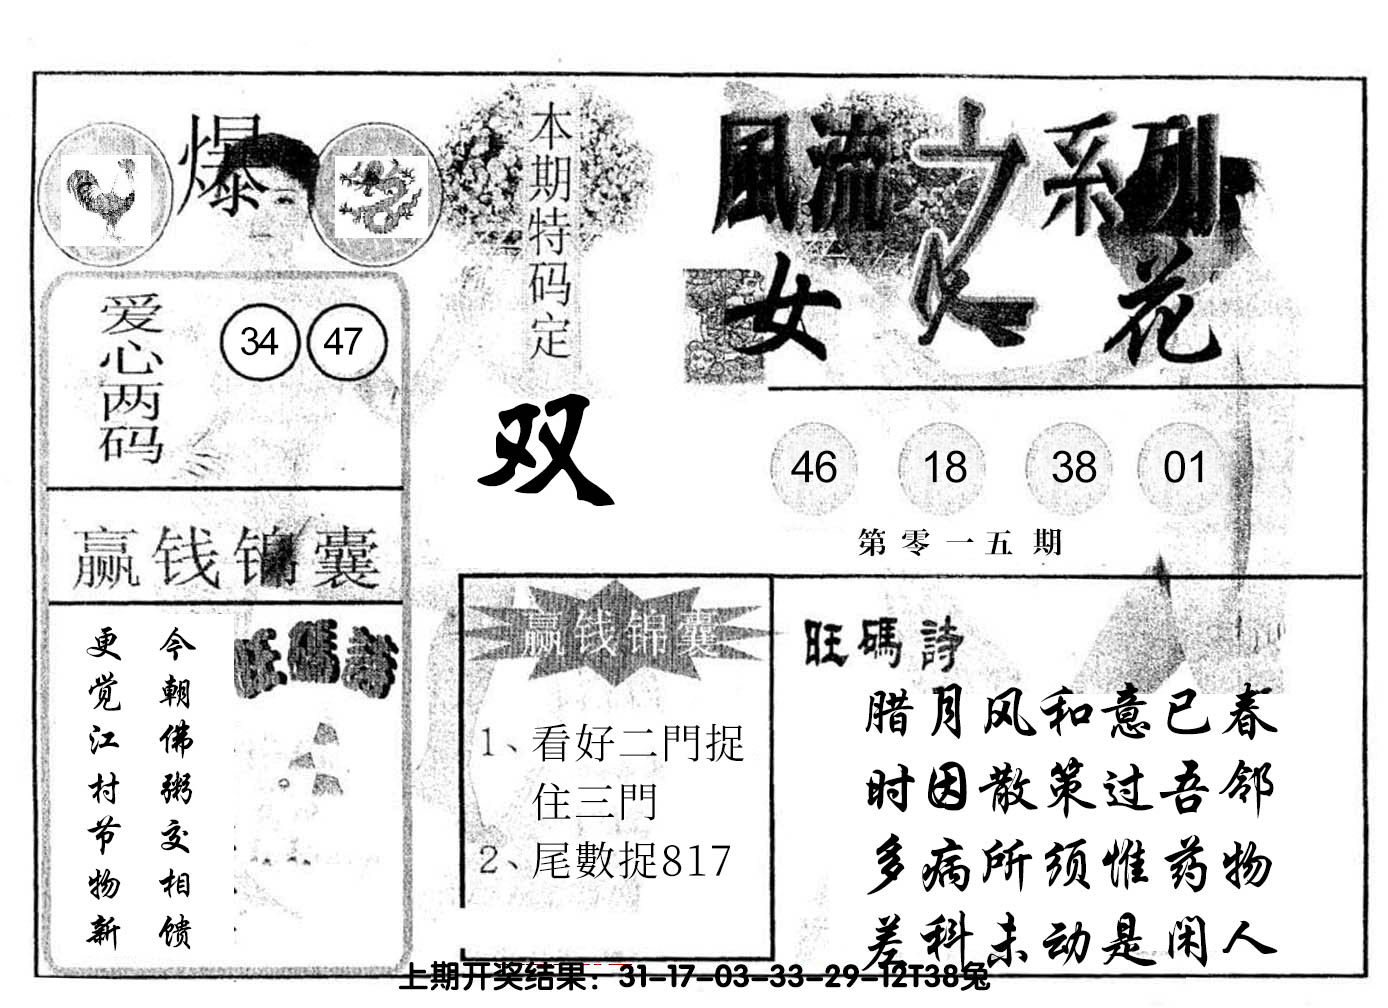 爆
本期特码定
双
風流之系列
女人花
爱心两码
34 47
46 18 38 01
第零一五期
赢钱锦囊
旺碼詩
今朝佛粥交相馈
更觉江村节物新
赢钱锦囊
1、看好二門捉
住三門
2、尾數捉817
旺碼詩
腊月风和意已春
时因散策过吾邻
多病所须惟药物
差科未动是闲人
上期开奖结果：31-17-03-33-29-12T38兔